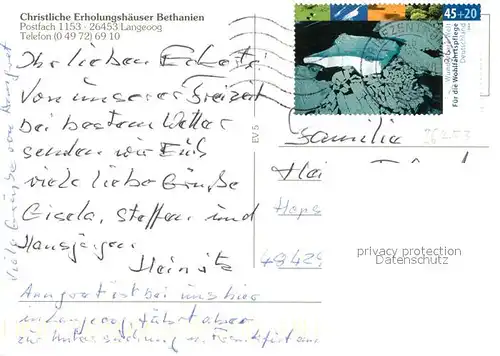 Christliche Erholungshäuser Bethanien
Postfach 1153 · 26453 Langeoog
Telefon (0 49 72) 69 10
Ihr lieben Eckerts
Von unserer Freizeit
bei bestem Wetter
senden wir Euch
viele liebe Grüße
Gisela, Steffen und
Hansjürgen
Heinitz
Anngret ist bei uns hier
in Langeoog, fährt aber
zur Untersuchung n. Frankfurt am
Viele Grüße von Anngret
EV 5
45+20
Für die Wohlfahrtspflege
Deutschland
Familie
Hei
Hops
48429
privacy protection
Datenschutz